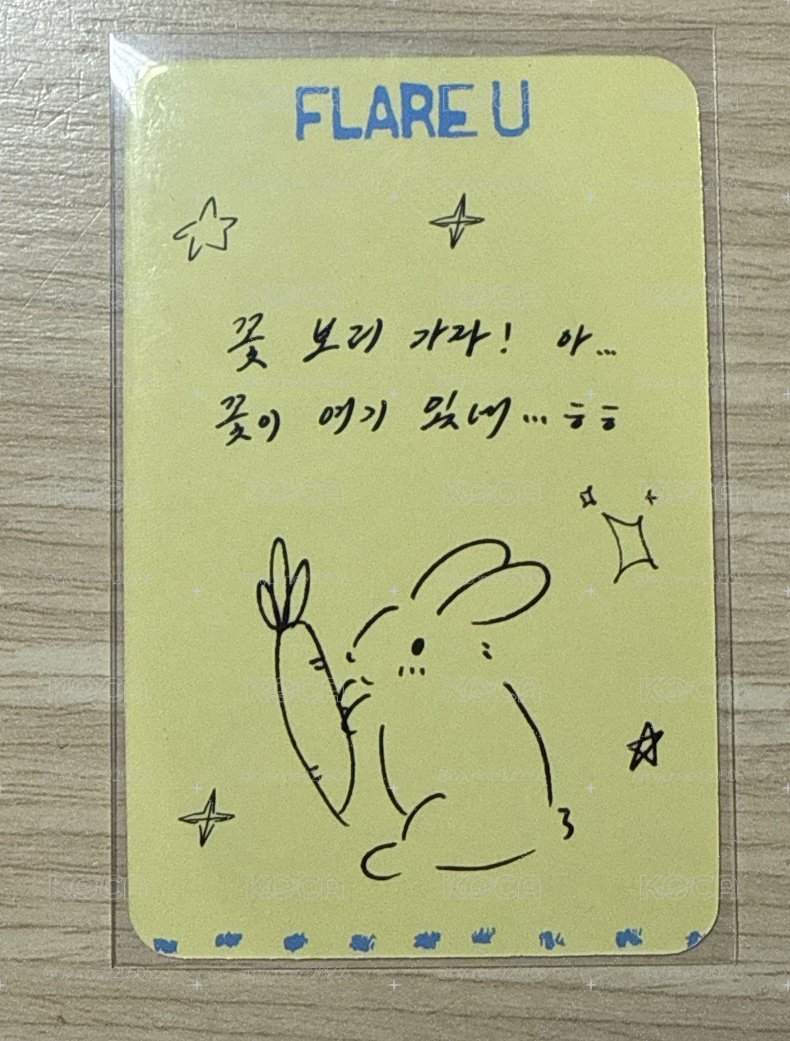 FLARE U
꽃 보러 가자! 아...
꽃이 여기 있네... ㅎㅎ
KOCA